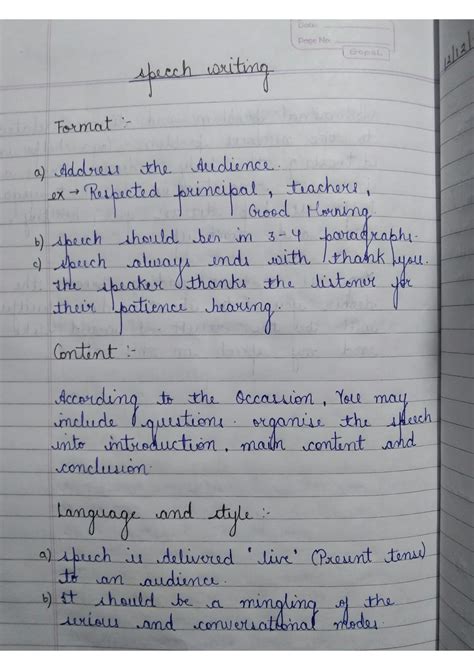 Date:
Page No.
Gopal
12/12/
speech writing
Format :-
a) Address the Audience.
ex → Respected principal, teachers,
Good Morning.
b) speech should ben in 3-4 paragraphs.
c) speech always ends with thank you.
the speaker thanks the listoner for
their patience hearing.
Content :-
According to the Occassion, You may
include questions. organise the speech
into introduction, main content and
conclusion.
Language and style :-
a) speech is delivered 'live' (Present tense)
to an audience.
b) it should be a mingling of the
serious and conversational modes.